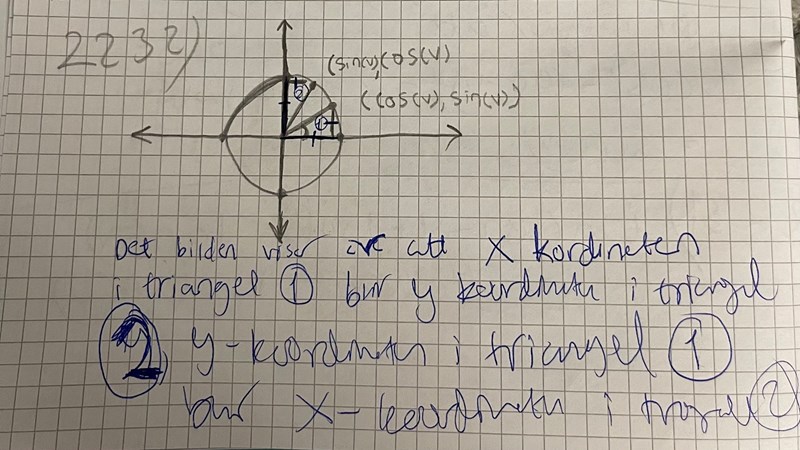 2232)
(sin(v), cos(v)
(cos(v), sin(v))
2
1
Det bilden viser är att X kordinaten
i triangel 1 blir y koordinaten i triangel
2 y-koordinaten i triangel 1
blir X-koordinaten i triangel 2